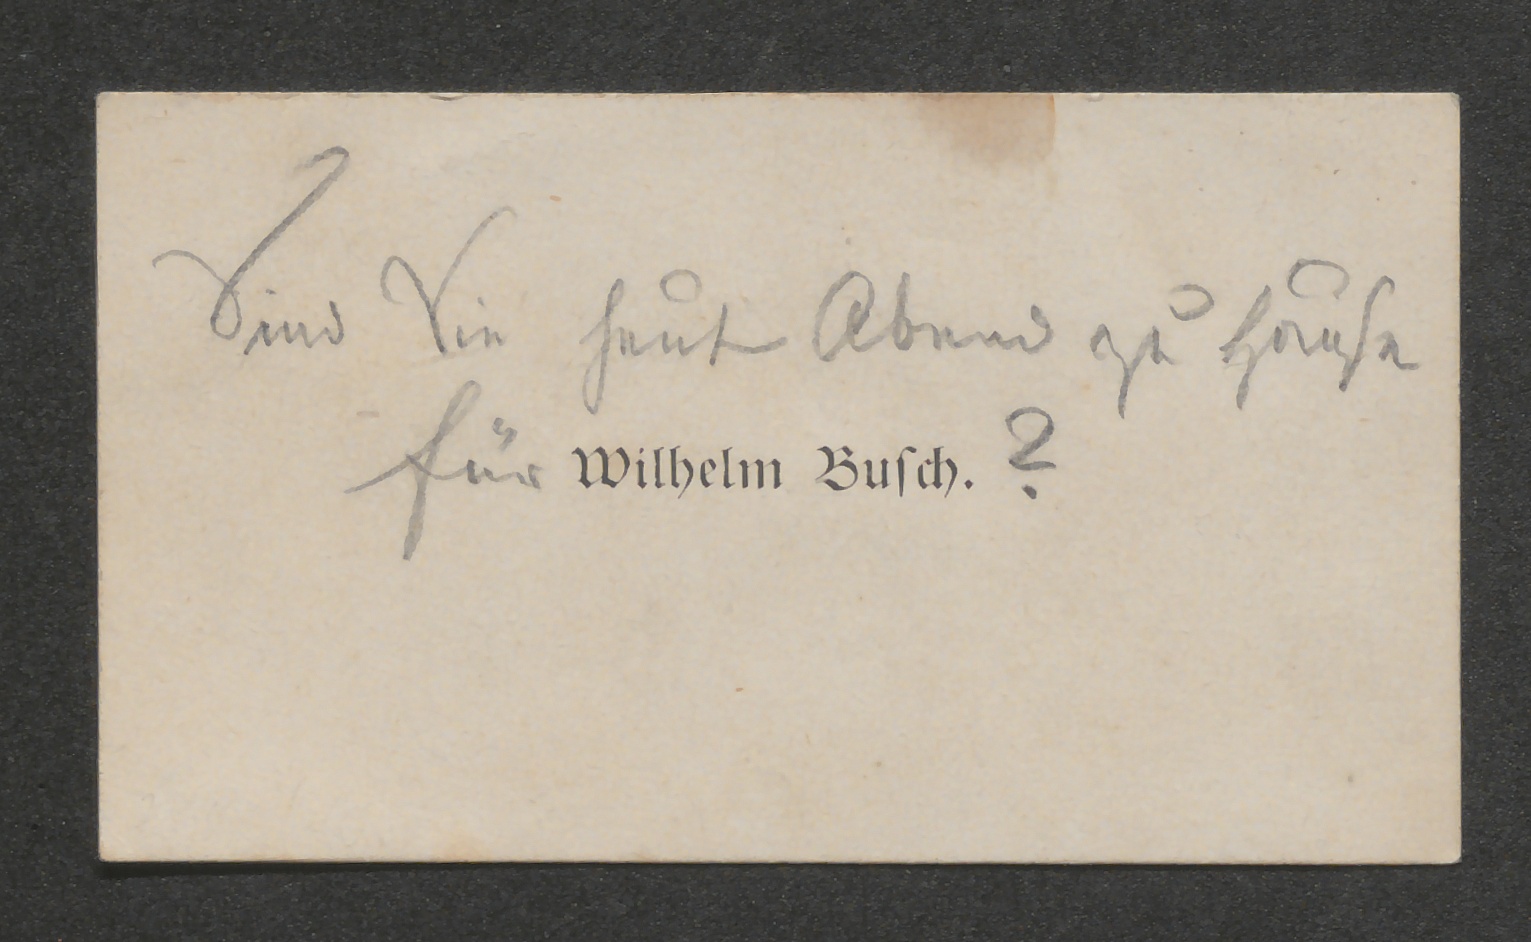 Sind Sie heut Abend zu Hause
für Wilhelm Buſch. ?